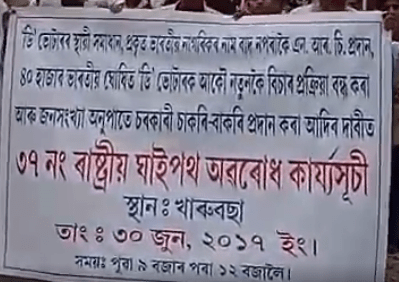 ডি' ভোটাৰৰ স্থায়ী সমাধান, প্ৰকৃত ভাৰতীয় নাগৰিকৰ নাম বাদ নপৰাকৈ এন. আৰ. চি. প্ৰদান,
৪০ হাজাৰ ভাৰতীয় ঘোষিত ডি' ভোটাৰক আকৌ নতুনকৈ বিচাৰ প্ৰক্ৰিয়া বন্ধ কৰা
আৰু জনসংখ্যা অনুপাতে চৰকাৰী চাকৰি-বাকৰি প্ৰদান কৰা আদিৰ দাবীত
৩৭ নং ৰাষ্ট্ৰীয় ঘাইপথ অৱৰোধ কাৰ্য্যসূচী
স্থান ঃ খাৰুবছা
তাং ঃ ৩০ জুন, ২০১৭ ইং।
সময়ঃ পুৱা ৯ বজাৰ পৰা ১২ বজালৈ।